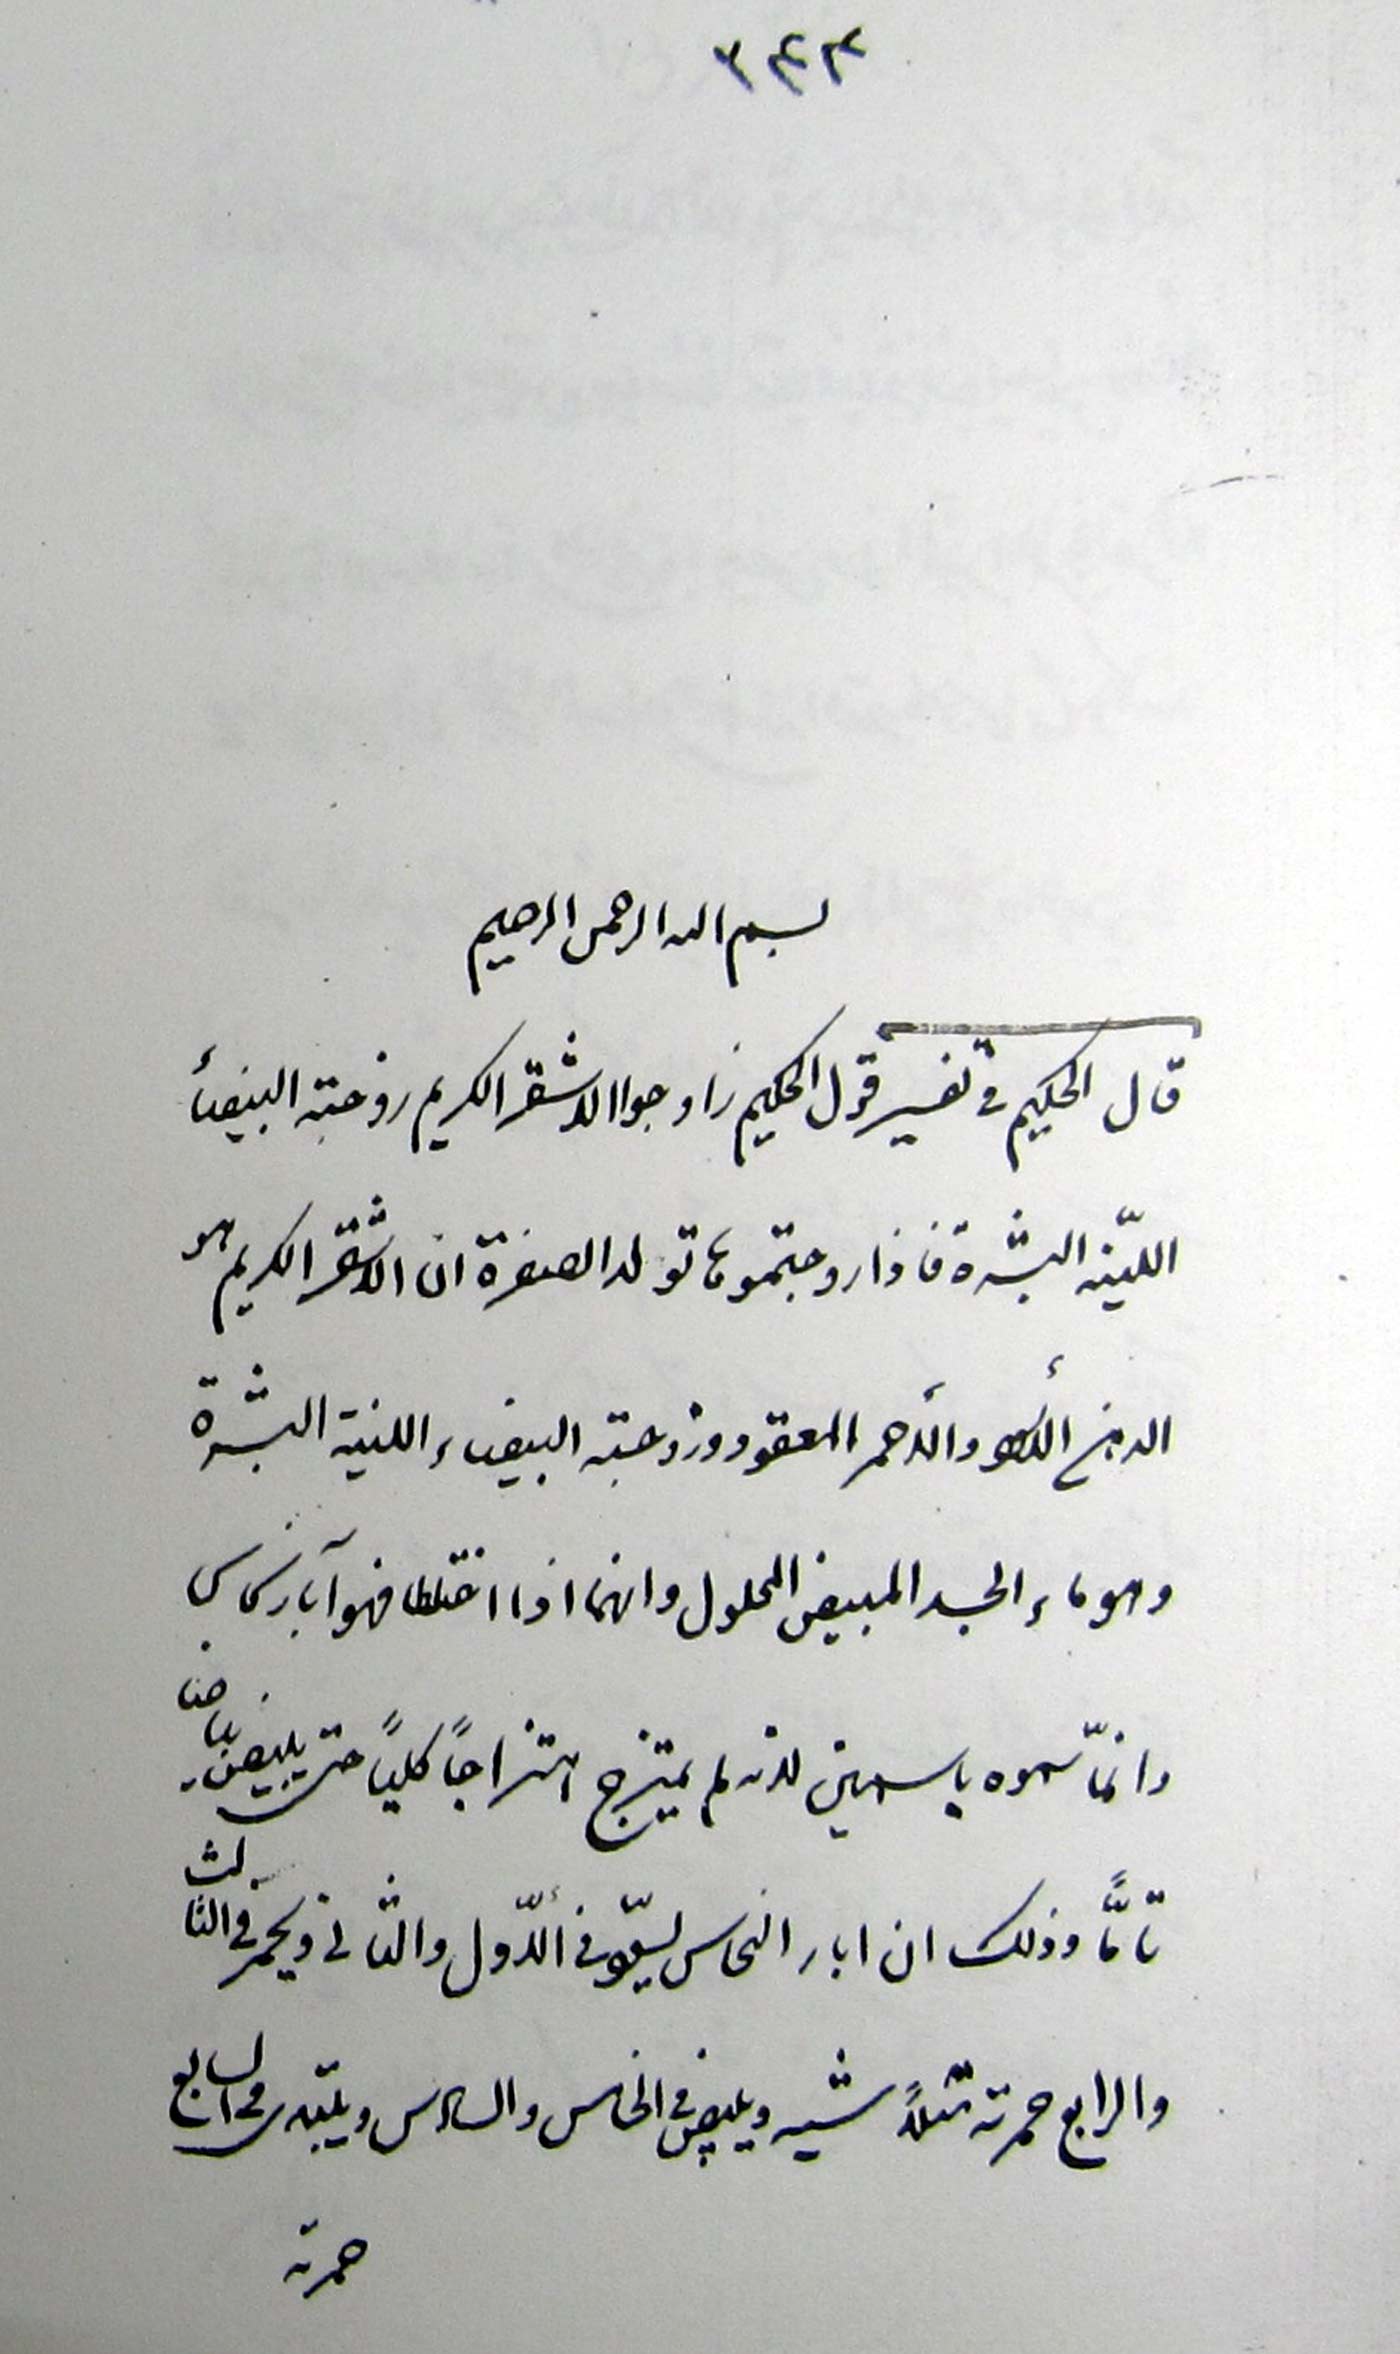 بسم الله الرحمن الرحيم
قال الحكيم في تفسير قول الحكيم زاوجوا الاشقر الكريم زوجته البيضأ
الليّنه البشرة فاذا زوجتموها تولد الصفرة ان الاشقر الكريم هو
الدهن والأحمر المعقود وزوجته البيضاء اللنية البشرة
وهو ماء الجسد المبيض المحلول وانهما اذا اختلطا فهو آبار نحاس
وانمّا سموه باسمين لانه لم يمتزج امتزاجاً كلياً حتى يبيض بياضا
تامًّا وذلك ان ابار النحاس يسوّد في الأوّل والثاني ويحمر في الثالث
والرابع حمرته شيه ويبيض في الخامس والسادس ويبتدى في السابع
حمرته